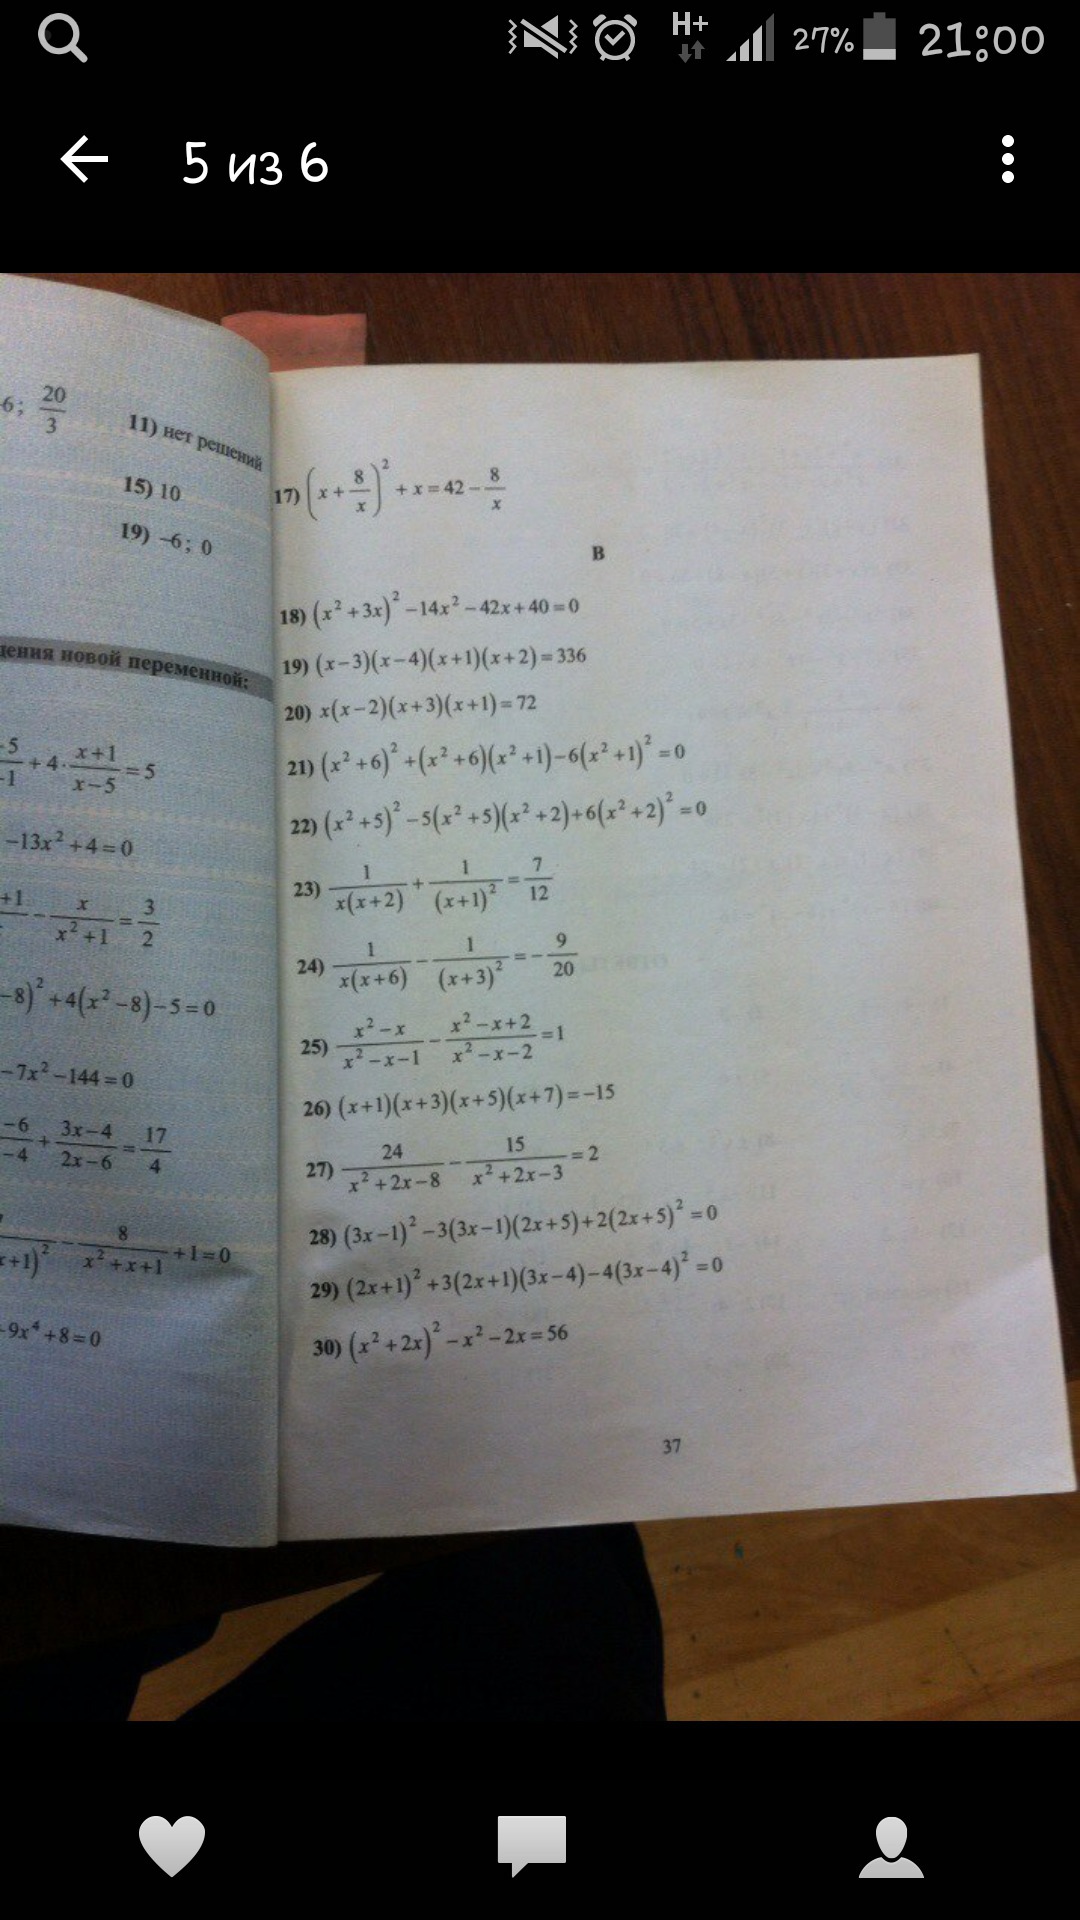 H+ 27% 21:00
5 из 6
6; 20/3
11) нет решений
15) 10
19) −6; 0
дения новой переменной:
+ 4 · (x+1)/(x−5) = 5
−13x² + 4 = 0
− x/(x²+1) = 3/2
−8)² + 4(x² − 8) − 5 = 0
− 7x² − 144 = 0
+ (3x−4)/(2x−6) = 17/4
− 8/(x²+x+1) + 1 = 0
9x⁴ + 8 = 0
17) (x + 8/x)² + x = 42 − 8/x
В
18) (x² + 3x)² − 14x² − 42x + 40 = 0
19) (x − 3)(x − 4)(x + 1)(x + 2) = 336
20) x(x − 2)(x + 3)(x + 1) = 72
21) (x² + 6)² + (x² + 6)(x² + 1) − 6(x² + 1)² = 0
22) (x² + 5)² − 5(x² + 5)(x² + 2) + 6(x² + 2)² = 0
23) 1/(x(x+2)) + 1/(x+1)² = 7/12
24) 1/(x(x+6)) − 1/(x+3)² = − 9/20
25) (x² − x)/(x² − x − 1) − (x² − x + 2)/(x² − x − 2) = 1
26) (x + 1)(x + 3)(x + 5)(x + 7) = −15
27) 24/(x² + 2x − 8) − 15/(x² + 2x − 3) = 2
28) (3x − 1)² − 3(3x − 1)(2x + 5) + 2(2x + 5)² = 0
29) (2x + 1)² + 3(2x + 1)(3x − 4) − 4(3x − 4)² = 0
30) (x² + 2x)² − x² − 2x = 56
37